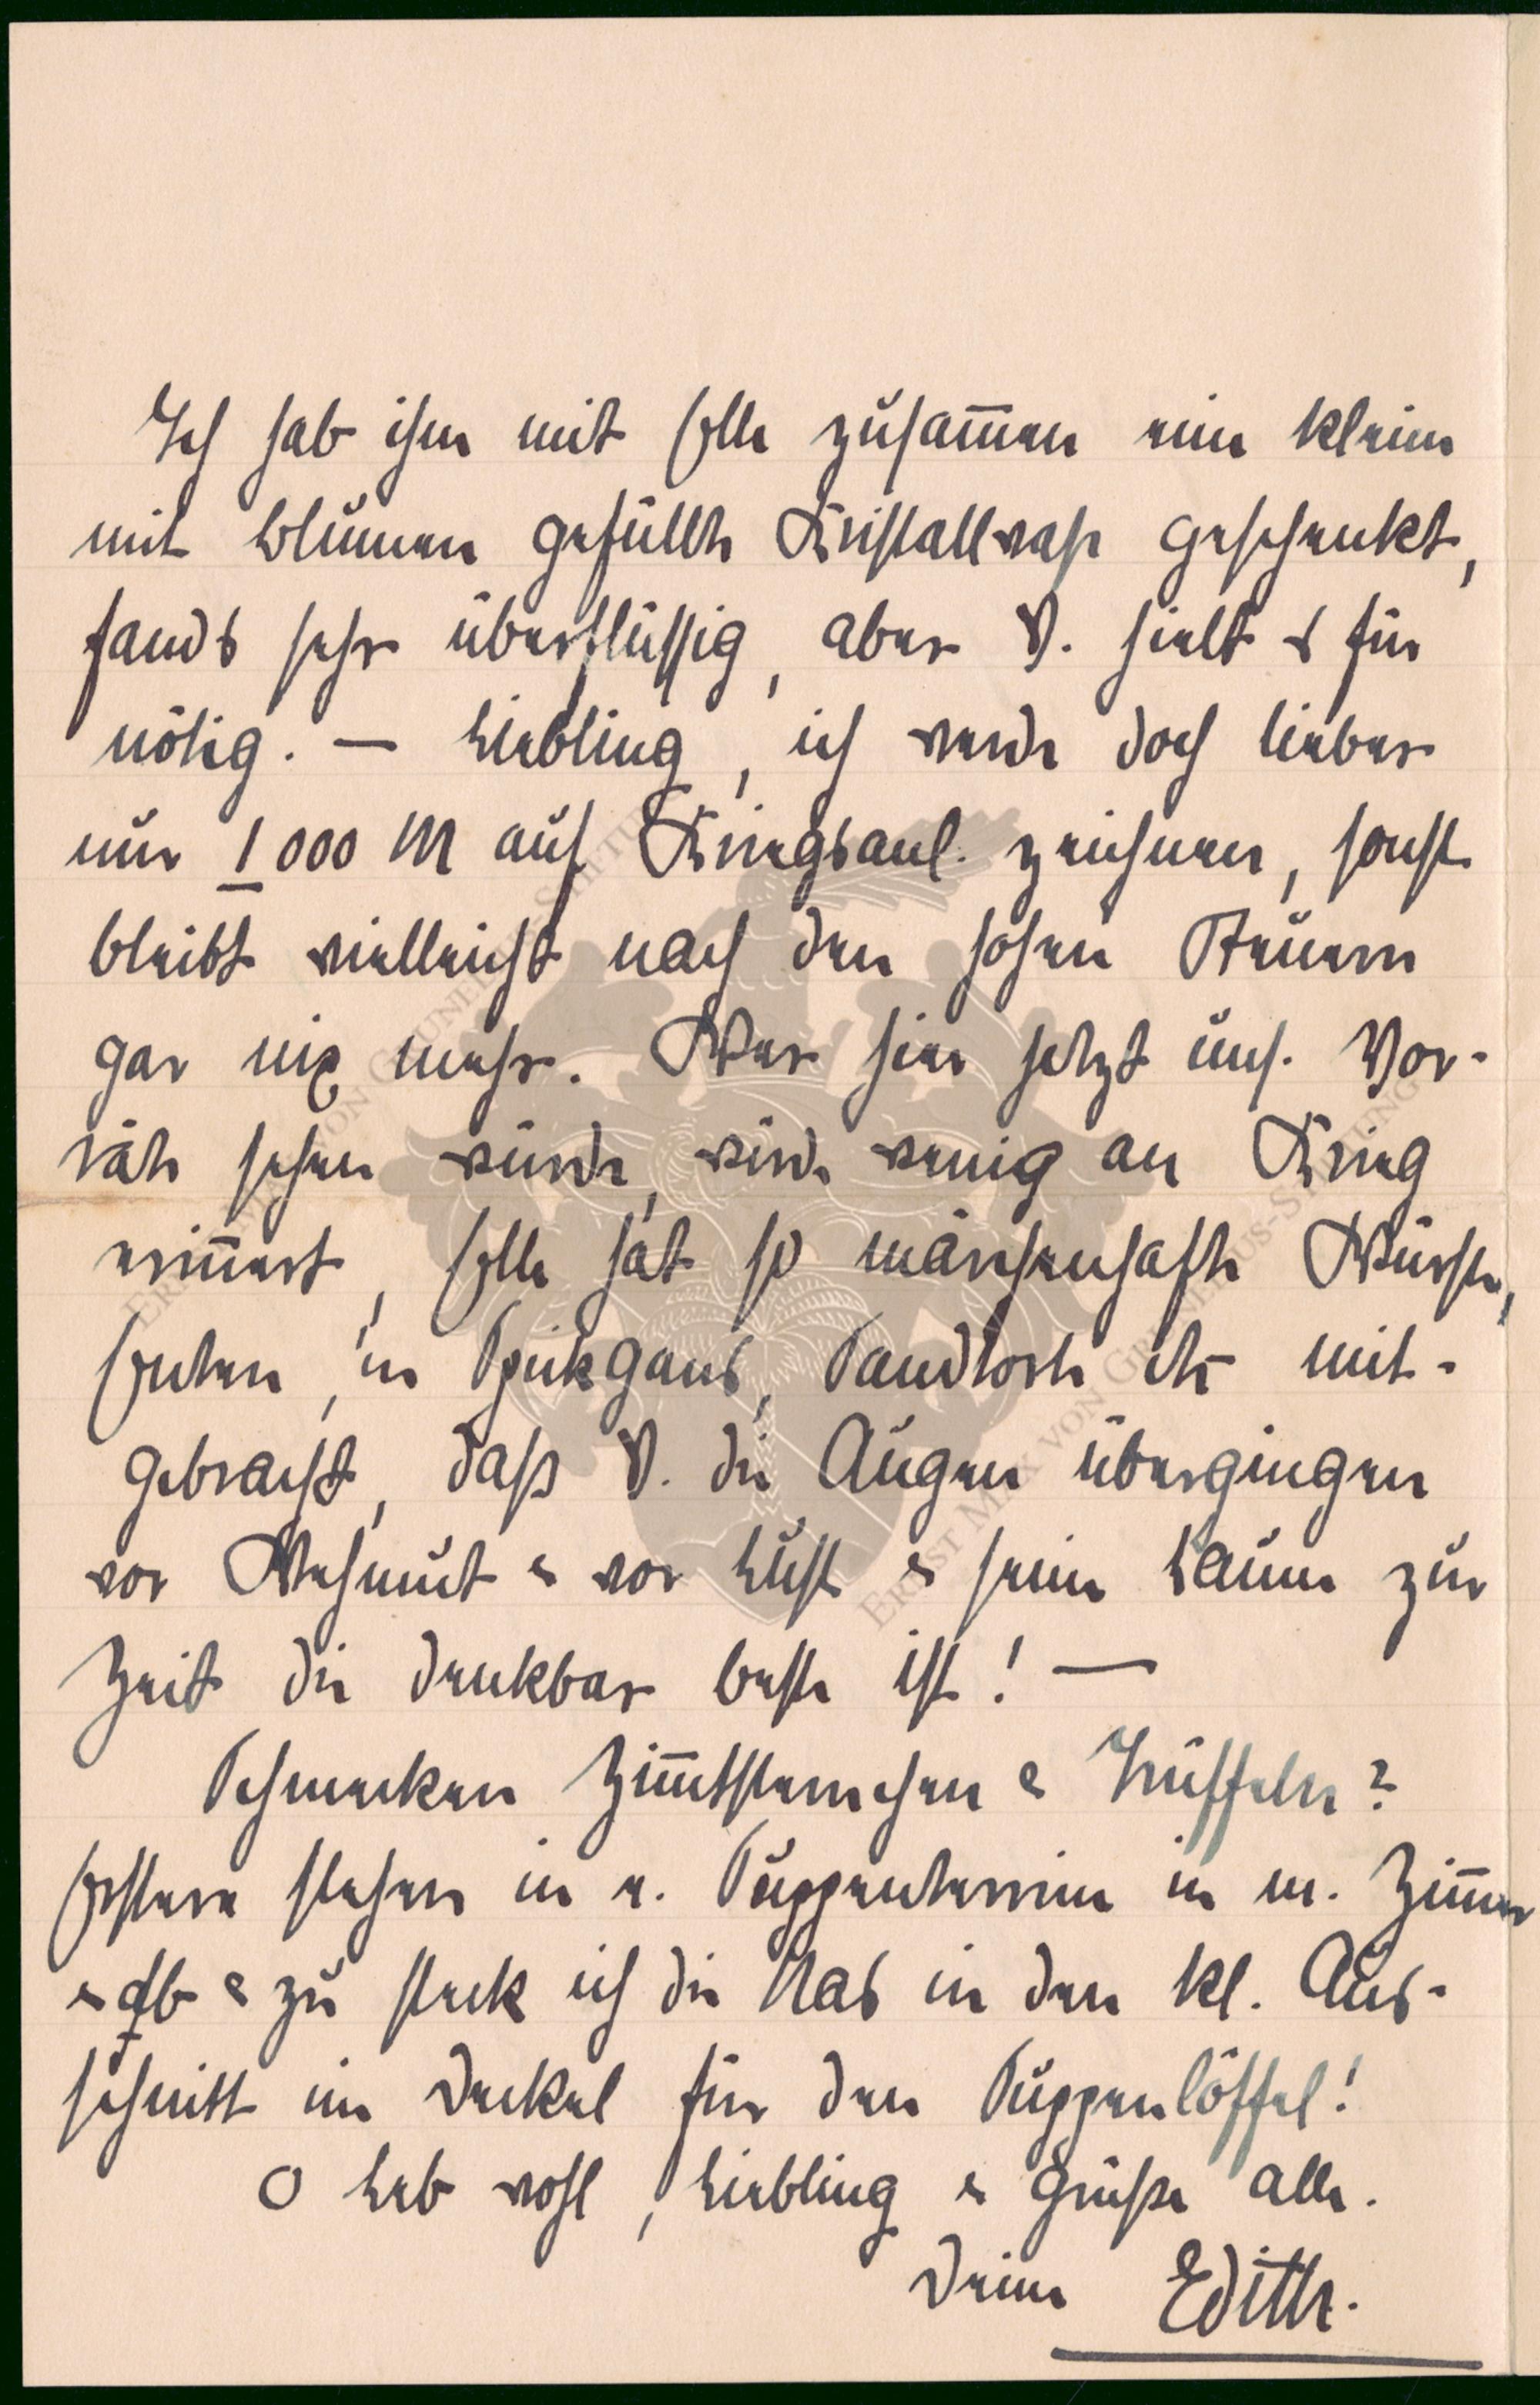 Ich hab ihm mit Elle zusam̅en eine kleine
mit Blumen gefüllte Kristallvase geschenkt,
fands sehr überflüssig, aber V. hielt es für
nötig. — Liebling, ich werde doch lieber
nur 1000 M auf Kriegsanl. zeichnen, sonst
bleibt vielleicht nach den hohen Steuern
gar nix mehr. Wer hier jetzt uns. Vor-
räte sehen würde, wird wenig an Krieg
erin̅ert, Elle hat so märchenhafte Würste,
Enten, 'ne Spickgans, Sandtorte etc mit-
gebracht, daß V. die Augen übergingen
vor Wehmut & vor Lust & seine Laune zur
Zeit die denkbar beste ist! —
Schmecken Zim̅tsternchen & Trüffeln?
Erstere stehen in e. Suppenterrine in m. Zim̅er
& ab & zu steck ich die Nas in den kl. Aus-
schnitt im Deckel für den Suppenlöffel!
O Leb wohl, Liebling & grüße alle.
Deine Edith.
ERNST MAX VON GRUNELIUS-STIFTUNG
ERNST MAX VON GRUNELIUS-STIFTUNG